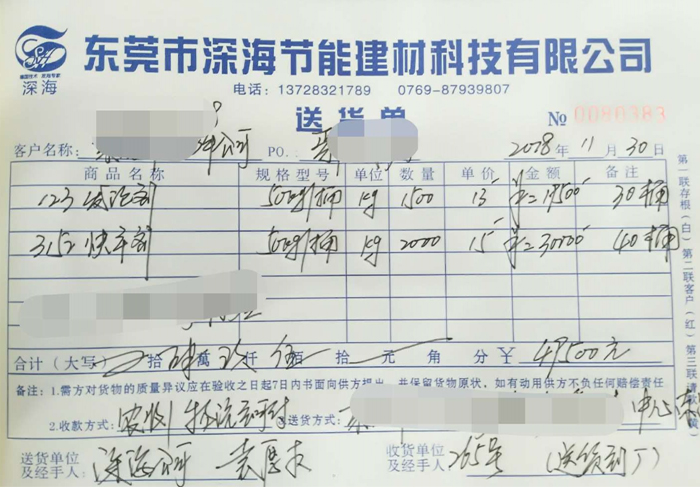 深海
东莞市深海节能建材科技有限公司
电话：13728321789 0769-87939807
送货单 № 0080383
客户名称： 公司 PO. 2018年11月30日
商品名称 规格型号 单位 数量 单价 金额 备注
123发泡剂 50kg/桶 kg 1500 13 ¥=19500 30桶
3152快干剂 50kg/桶 kg 2000 15 ¥=30000 40桶
合计（大写） 拾 肆 萬 玖 仟 伍 佰 拾 元 角 分 ¥ 49500元
备注：1.需方对货物的质量异议应在验收之日起7日内书面向供方提出，并保留货物原状，如有动用供方不负任何赔偿责任
2.收款方式： 3.送货方式： 中心东
送货单位及经手人： 深海公司 收货单位及经手人： 265号 （送货到厂）
第一联存根（白）第二联客户（红）第三联